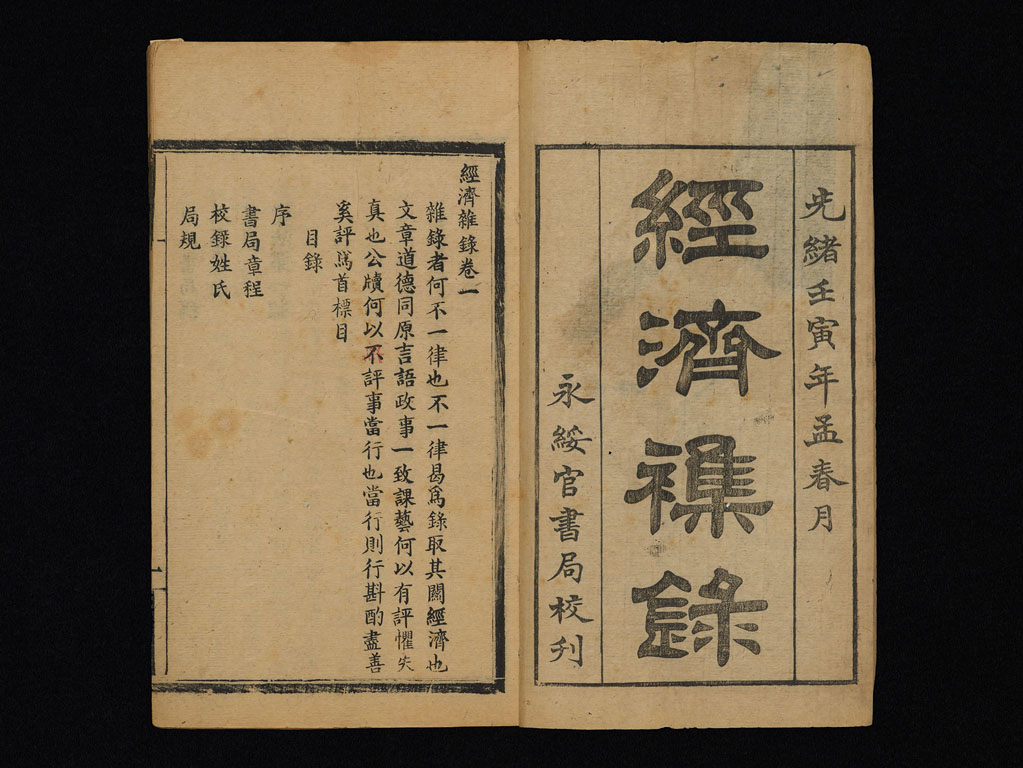 光緒壬寅年孟春月
經濟襍錄
永綏官書局校刋
經濟雜錄卷一
雜錄者何不一律也不一律曷爲錄取其關經濟也
文章道德同原言語政事一致課藝何以有評懼失
真也公牘何以不評事當行也當行則行斟酌盡善
奚評爲首標目
目錄
序
書局章程
校錄姓氏
局規